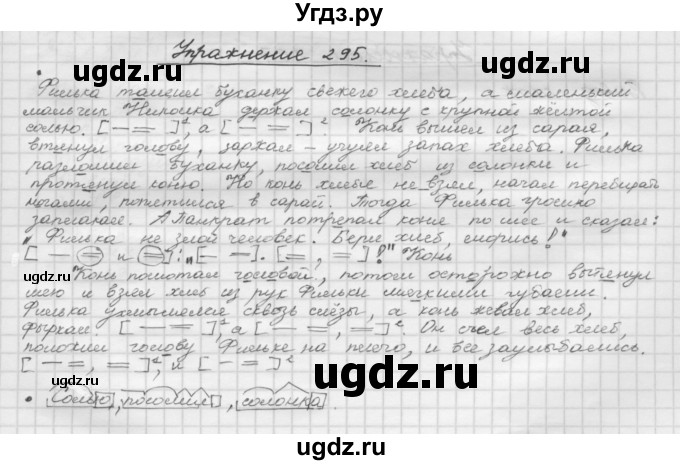 Угдз.ру
Упражнение 295.
Филька тащил буханку свежего хлеба, а маленький
мальчик Николка держал солонку с крупной жёлтой
солью. [ – = = ]¹, а [ – = ]². Конь вышел из сарая,
втянул голову, заржал – учуял запах хлеба. Филька
разломил буханку, посолил хлеб из солонки и
протянул коню. Но конь хлеба не взял, начал перебирать
ногами, попятился в сарай. Тогда Филька громко
заплакал. А Панкрат потрепал коня по шее и сказал:
"Филька не злой человек. Бери хлеб, мирись!"
[ – = и = ]: "[ – – ]. [ =, = ]!" Конь
Конь помотал головой, потом осторожно вытянул
шею и взял хлеб из рук Фильки мягкими губами.
Филька ухмылялся сквозь слёзы, а конь жевал хлеб,
фыркал. [ – = ]¹, а [ – =, = ]². Он съел весь хлеб,
положил голову Фильке на плечо, и все заулыбались.
[ – =, = ]¹, и [ – = ]²
• Солью, посолил, солонка.
угдз.ru
угдз.ru
угдз.ru
угдз.ru
угдз.ru
угдз.ru
угдз.ru
угдз.ru
угдз.ru
угдз.ru
угдз.ru
угдз.ru